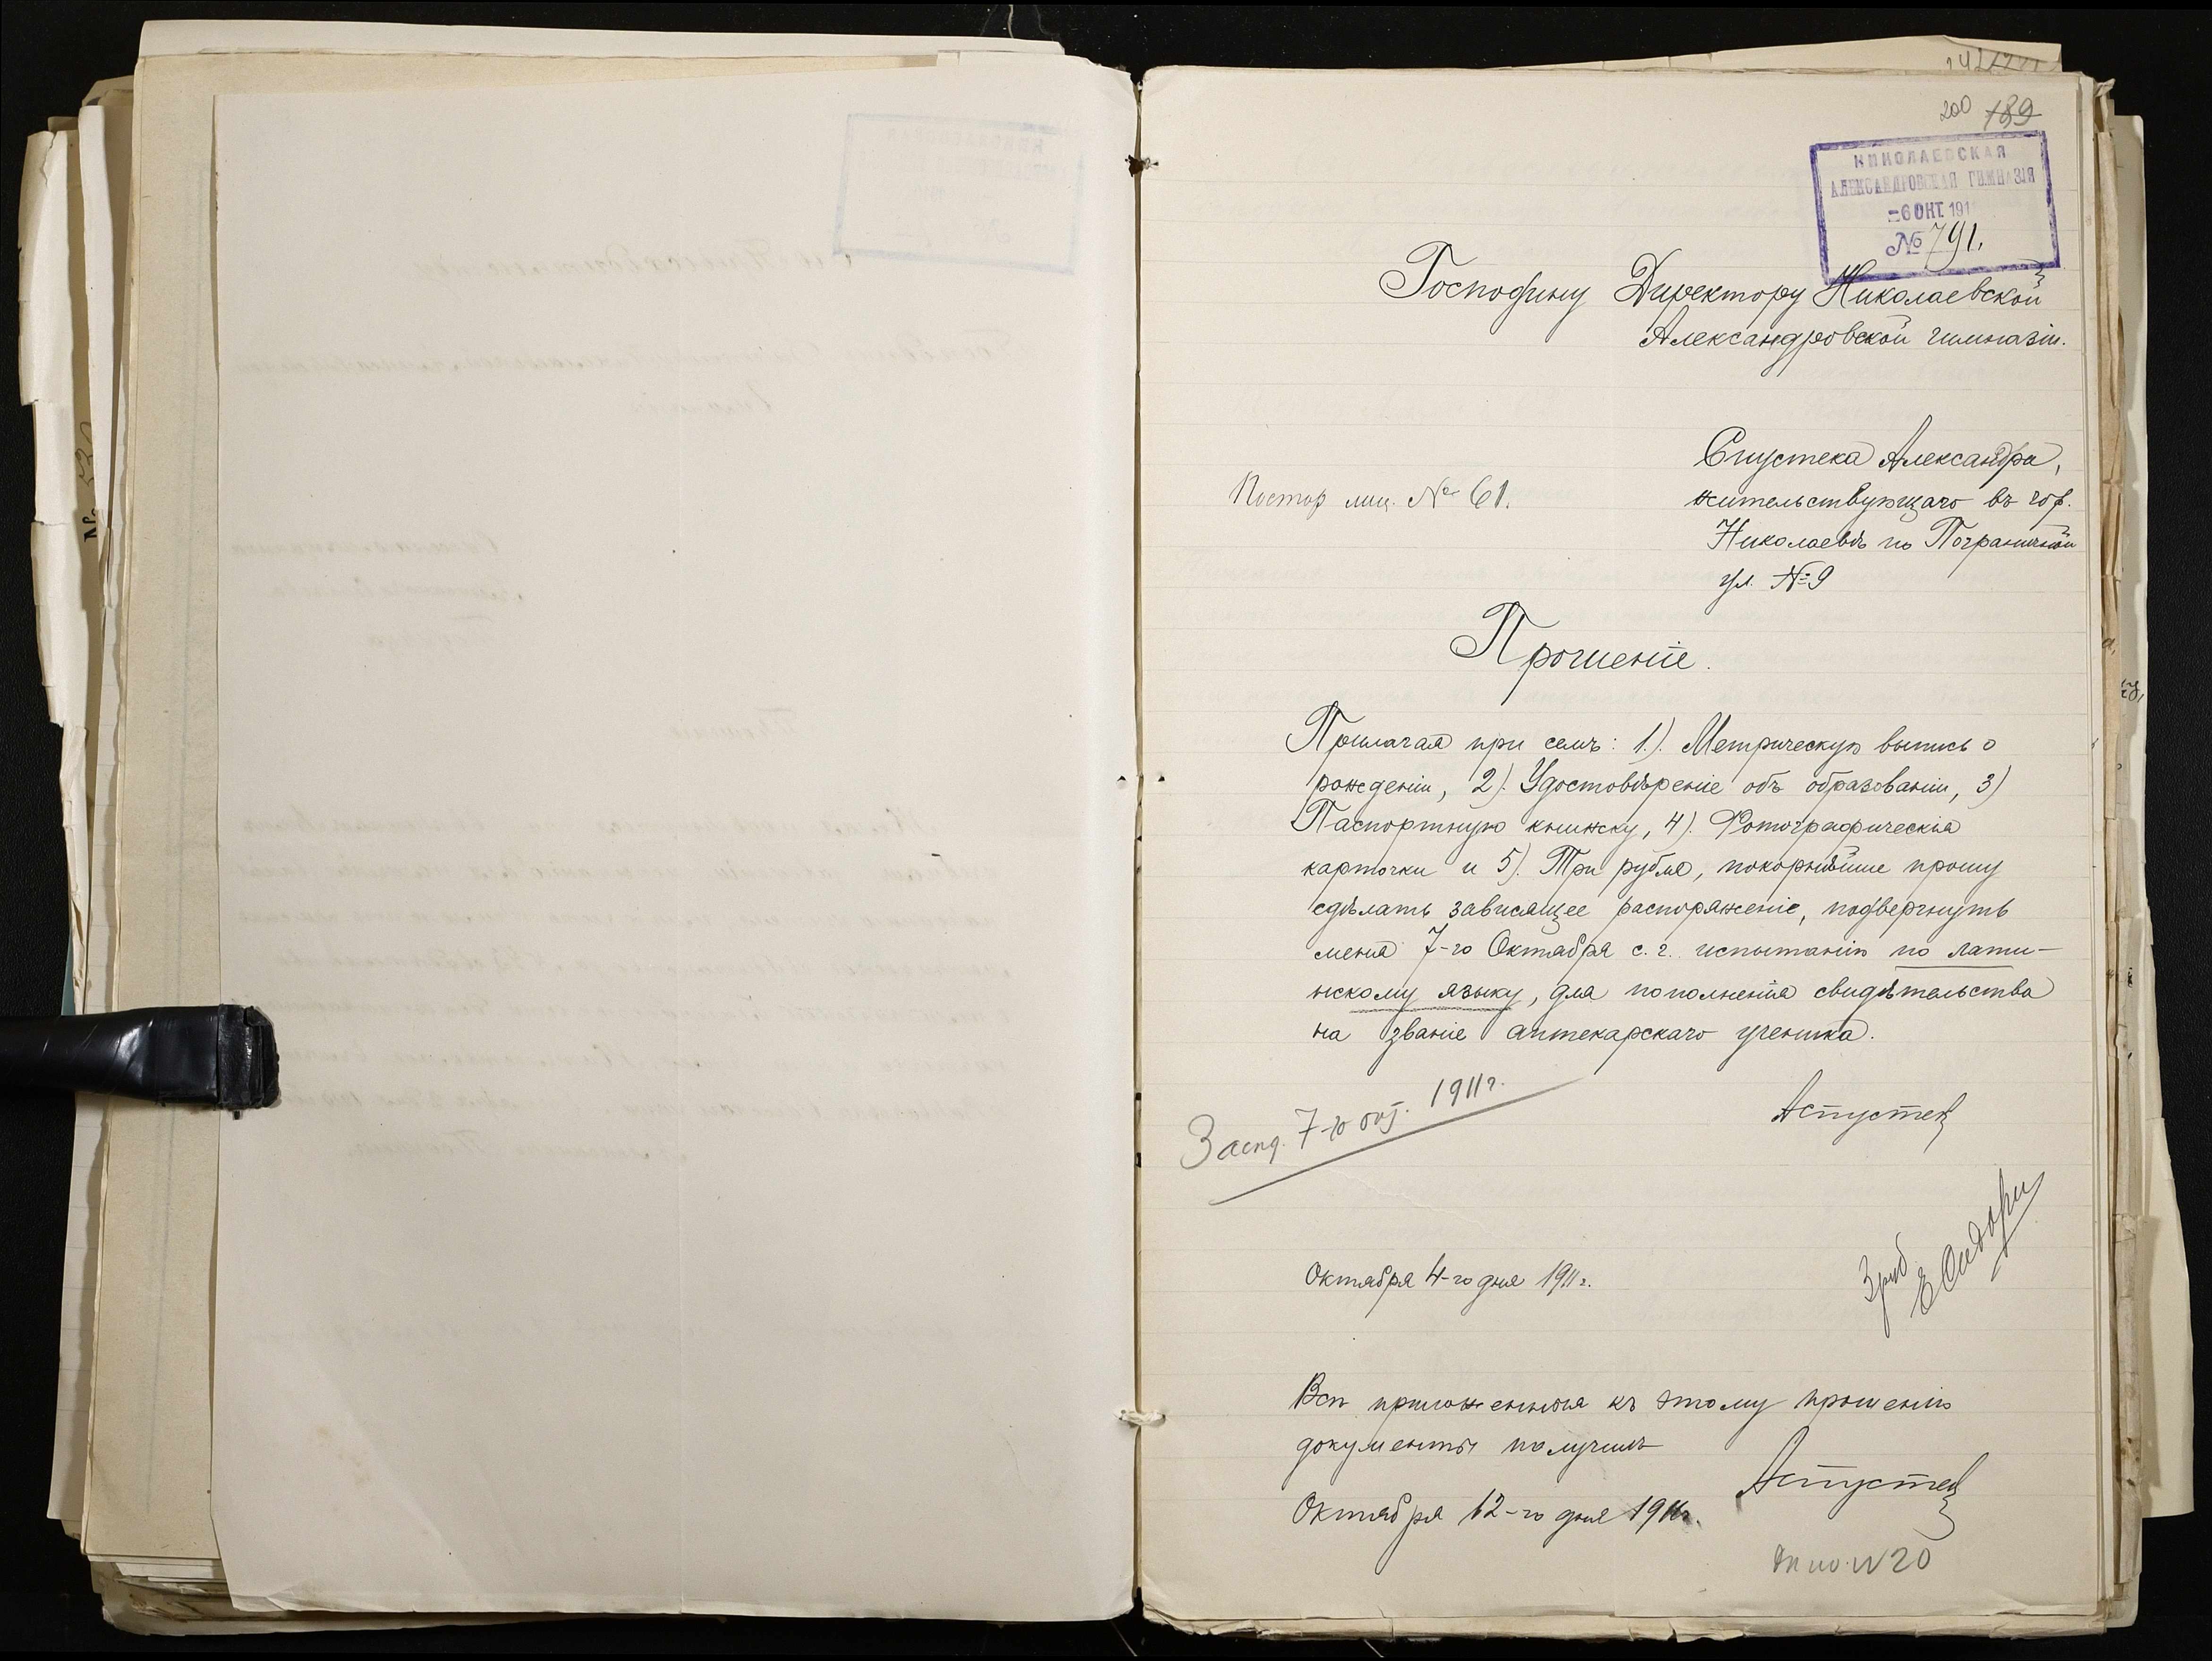 200 189
НИКОЛАЕВСКАЯ
АЛЕКСАНДРОВСКАЯ ГИМНАЗІЯ
-6 ОКТ. 191
№ 791.
Господину Директору Николаевской
Александровской гимназіи.
Спустека Александра,
жительствующаго въ гор.
Николаевѣ по Пограничной
ул. №9
Постор лиц. № 61.
Прошеніе.
Прилагая при семъ: 1). Метрическую выпись о
рожденіи, 2). Удостовѣреніе объ образованіи, 3)
Паспортную книжку, 4). Фотографическія
карточки и 5). Три рубля, покорнѣйше прошу
сдѣлать зависящее распоряженіе, подвергнуть
меня 7-го Октября с. г. испытанію по лати-
нскому языку, для пополненія свидѣтельства
на званіе аптекарскаго ученика.
АСпустек
7-го 1911 г.
Октября 4-го дня 1911 г.
Всѣ приложенныя къ этому прошенію
документы получилъ
АСпустек
Октября 12-го дня 1911 г.
№ 20